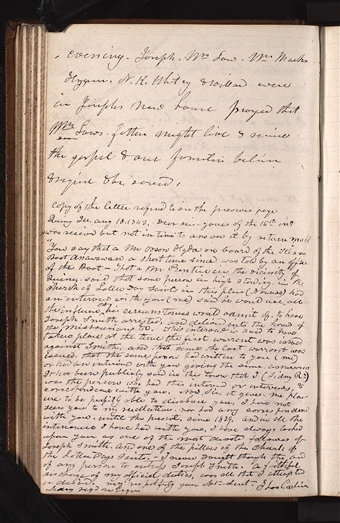 evening. Joseph. Wm Law. Wm Marks
Hyrum. N. K. Whitney & Willard were
in Josephs new house prayed that
Wms Laws father might live & receive
the gospel & our families
&
Copy of the letter refered to on the previous page
Quincy Ill. Aug 18. 1843. Dear sir yours of the 15th inst
was receivd but not in time to answer it by return mail
"You say that a Mr Orson Hyde on board of the steam
Boat Anawan a short time since was told by an officer
of the Boat - that a Mr Prentice in the vicinity of
Quincy said that some person in high standing in the
church of Latter Day Saints in this place (Nauvoo) had
an interview with you (me) said he would use all
the influence his circumstances would admit of to have
Joseph Smith arrested and delivered into the hands of
the Missourians &c. This interview is said to have
taken place at the time the first warrant was issued
against Smith and that since the last warrant was
issued, that the same person had written to you (me)
or had an interview with you giving the same assurance
It has been published in the town that I (S. Rigdon)
was the person who had this interview or interviews, &
correspondence with you. Now Sir, it gives me pleas
ure to be perfectly able to disabuse you. I have not
seen you to my recollection nor had any correspondence
with you, until the present, since 1839, and in all the
interviews I have had with you, I have always looked
upon you as one of the most devoted followers of
Joseph Smith, and one of the pillars of the church of
the Latter Day Saints. I never sought through the aid
of any person to entrap Joseph Smith. A faithful
discharge of my official duties was all that I attempted
or desired. Very respectfully your obt servt. Thos Carlin